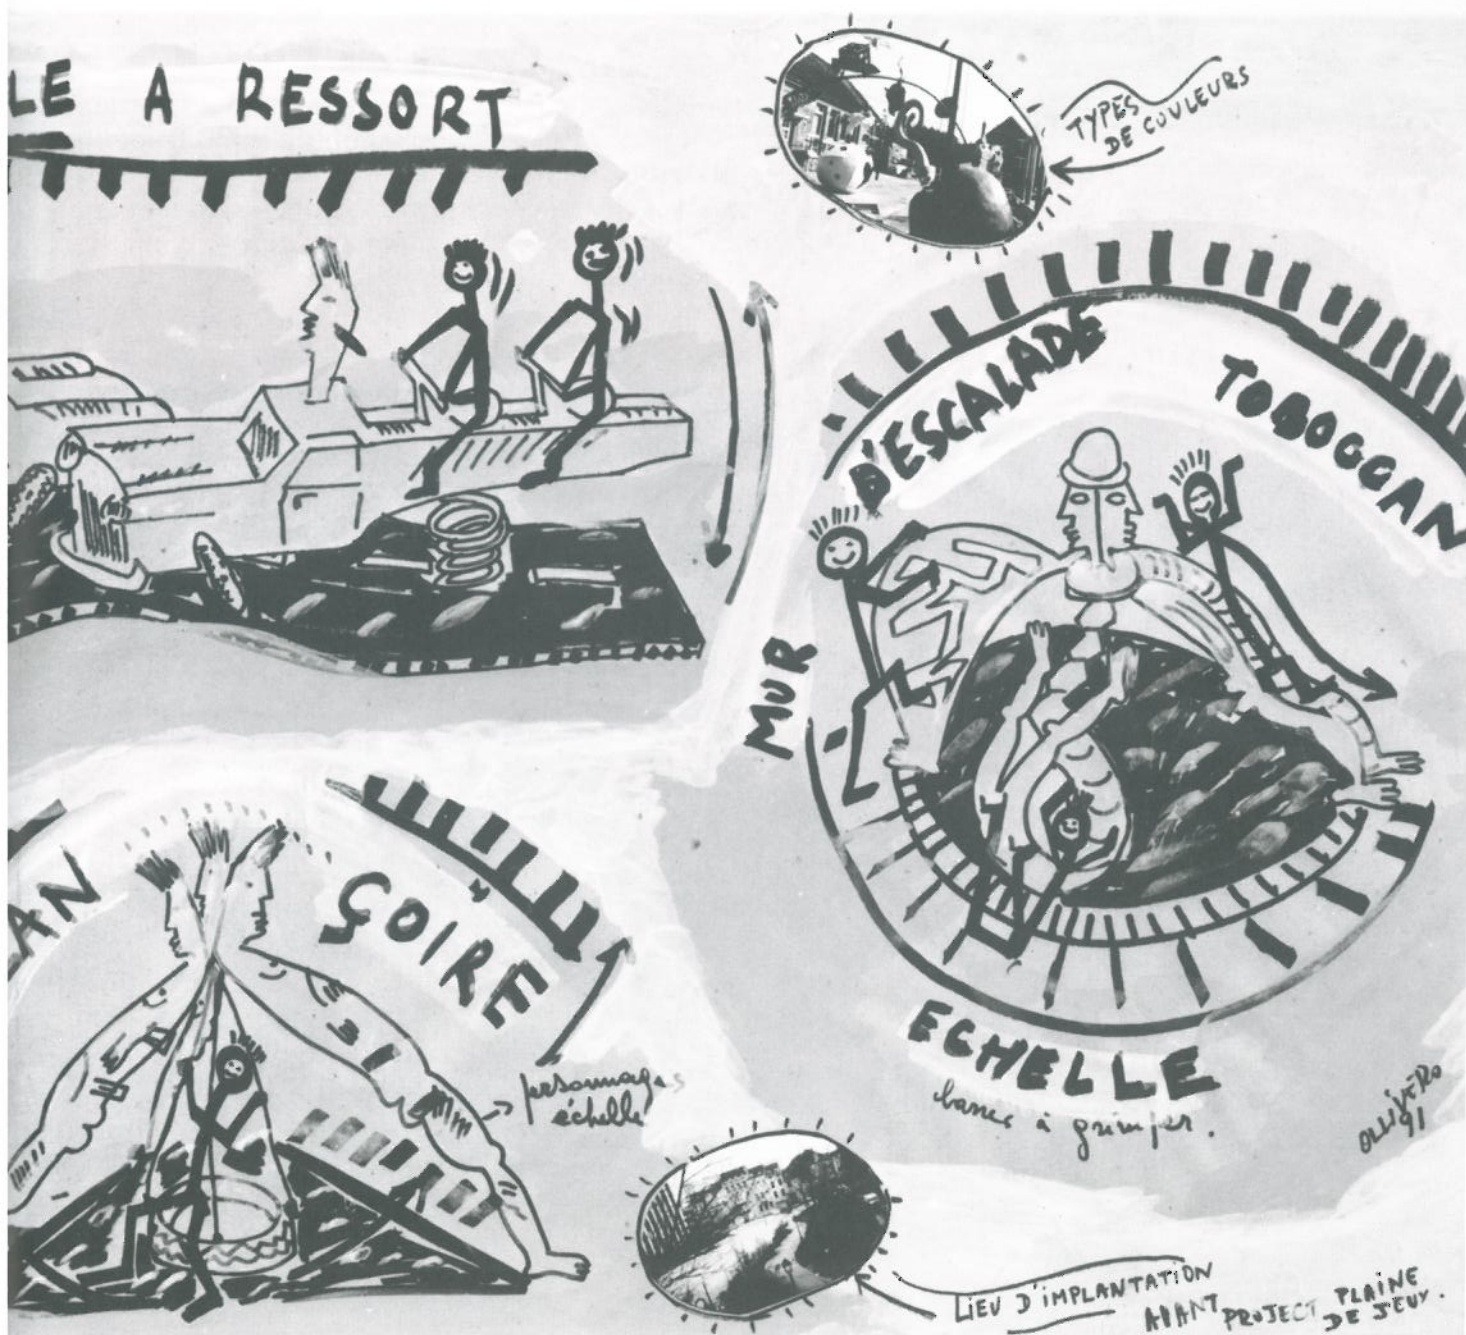 LE A RESSORT
TYPES
DE COULEURS
MUR D'ESCALADE
TOBOGGAN
AN
ÇOIRE
personnages
échelle
ECHELLE
barres à grimper.
OLLIVERO
91
LIEU D'IMPLANTATION
AVANT PROJECT PLAINE
DE JEUX.